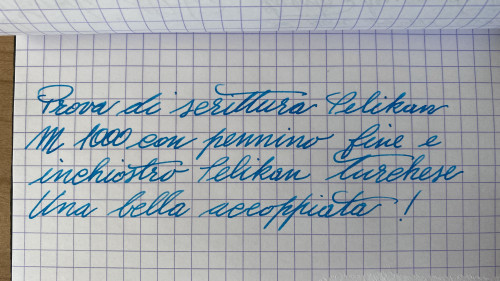 Prova di scrittura Pelikan
M 1000 con pennino fine e
inchiostro Pelikan turchese
Una bella accoppiata !